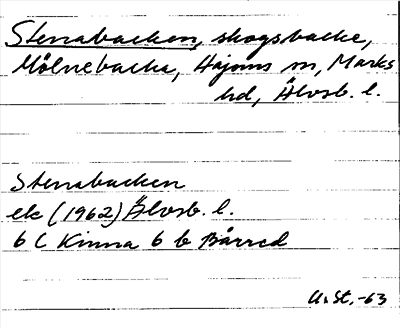 Stenabacken, skogsbacke,
Mölnebacka, Hajoms sn, Marks
hd, Älvsb. l.
Stenabacken
ek (1962) Älvsb. l.
6 C Kinna 6 b Bårred
U.St.-63